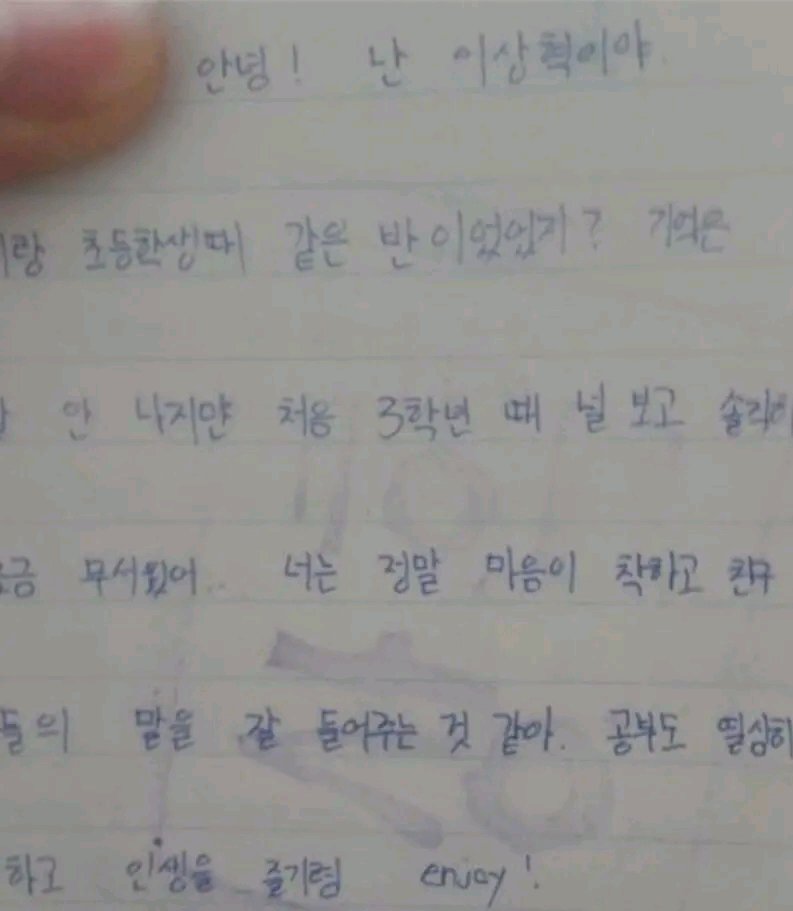 안녕! 난 이상혁이야.
랑 초등학생때 같은 반이었었지? 기억은
안 나지만 처음 3학년 때 널 보고 솔직히
조금 무서웠어.. 너는 정말 마음이 착하고 친구
들의 말을 잘 들어주는 것 같아. 공부도 열심히
하고 인생을 즐기렴 enjoy!